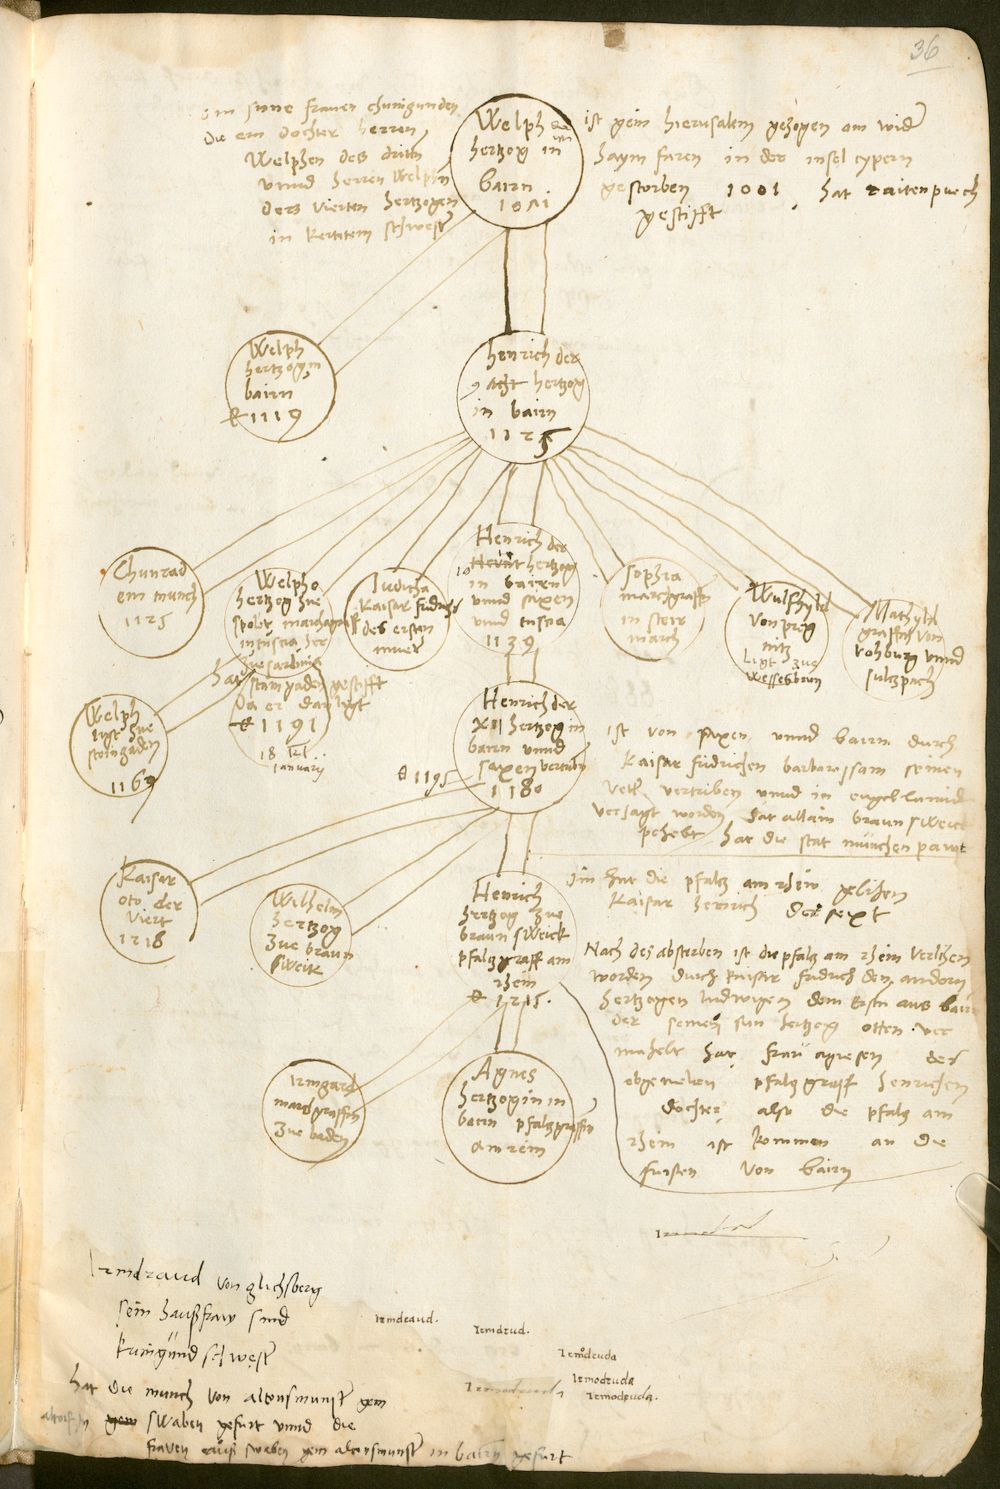 36
sine frauen chunigunden
die ein dochter herren
Welphen des driten
vnnd herren Welphn
ders vierten hertzogen
in schwester
Welph
hertzog in
bairn
ist gein hierusalem gezogen am wider
haym faren in der insel cypern
gestorben 1001 hat raitenpuech
gestifft
Welph
hertzog in
bairn
1119
henrich der
acht hertzog
in bairn
1125
Chunrad
ein munch
1125
Welpho
hertzog zue
Spolet marchgraff
in tuscia her
zue sardinia
hat staingaden gestifft
da er dan ligt
1191
18 kl
January
Iuditha
kaisar fridrichs
des ersten
mueter
Henrich der
10 hertzog
in bairn
vnnd saxen
vnnd tuscia
1139
Sophia
marchgraffin
in steir
march
Wulfhyld
von preg
nitz
ligt zue
Wessesbrun
Mathyld
graffin von
vohburg vnnd
sultzpach
Welph
ligt zue
staingaden
1169
Henrich der
XII hertzog in
bairn vnnd
saxen vertriben
1180
1195
ist von saxen vnnd bairn durch
kaisar fridrichen barbarossam seinen
veter vertriben vnnd in engellannd
versagt worden hat allain braunsweick
pehebt hat die stat munchen pawt
Kaisar
oto der
viert
1218
Wilhelm
hertzog
zue braun
sweik
Henrich
hertzog zue
braunsweick
pfaltzgraff am
rhein
1215
im hat die pfaltz am rhein gelihen
kaisar henrich der sext
Nach des absterben ist die pfaltz am rhein verlihen
worden durch kaisar fridrich den andern
hertzogen ludwigen dem ersten aus bairn
der seinem sun hertzog otten ver
mahelt hat frau agnesen des
obgemelten pfaltzgraff henrichen
dochter also die pfaltz am
rhein ist kommen an die
fursten von bairn
Irmgard
marchgraffin
zue baden
Agnes
hertzogin in
bairn pfaltzgraffin
am rein
Irmdraud von glichsberg
sein haußfraw sind
kunigund schwester
hat die munch von altonsmunster gen
altorf in swaben gefurt vnnd die
frauen auß swaben gem altonsmunster in bairn gefurt
Irmdraud.
Irmdrud.
Irmdruda
Irmodruda
Irmodruda.